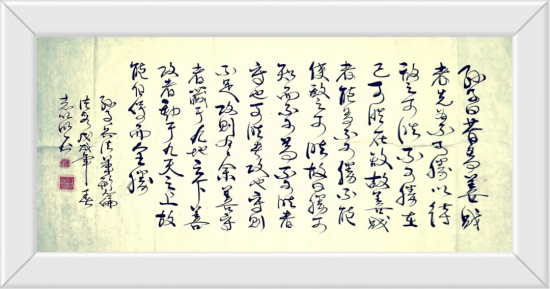 孙子曰昔之善战
者先为不可胜以待
敌之可胜不可胜在
己可胜在敌故善战
者能为不可胜不能
使敌之可胜故曰胜可
知而不可为不可胜者
守也可胜者攻也守则
不足攻则有余善守
者藏于九地之下善
攻者动于九天之上故
能自保而全胜
孙子兵法军形篇
戊戌年春